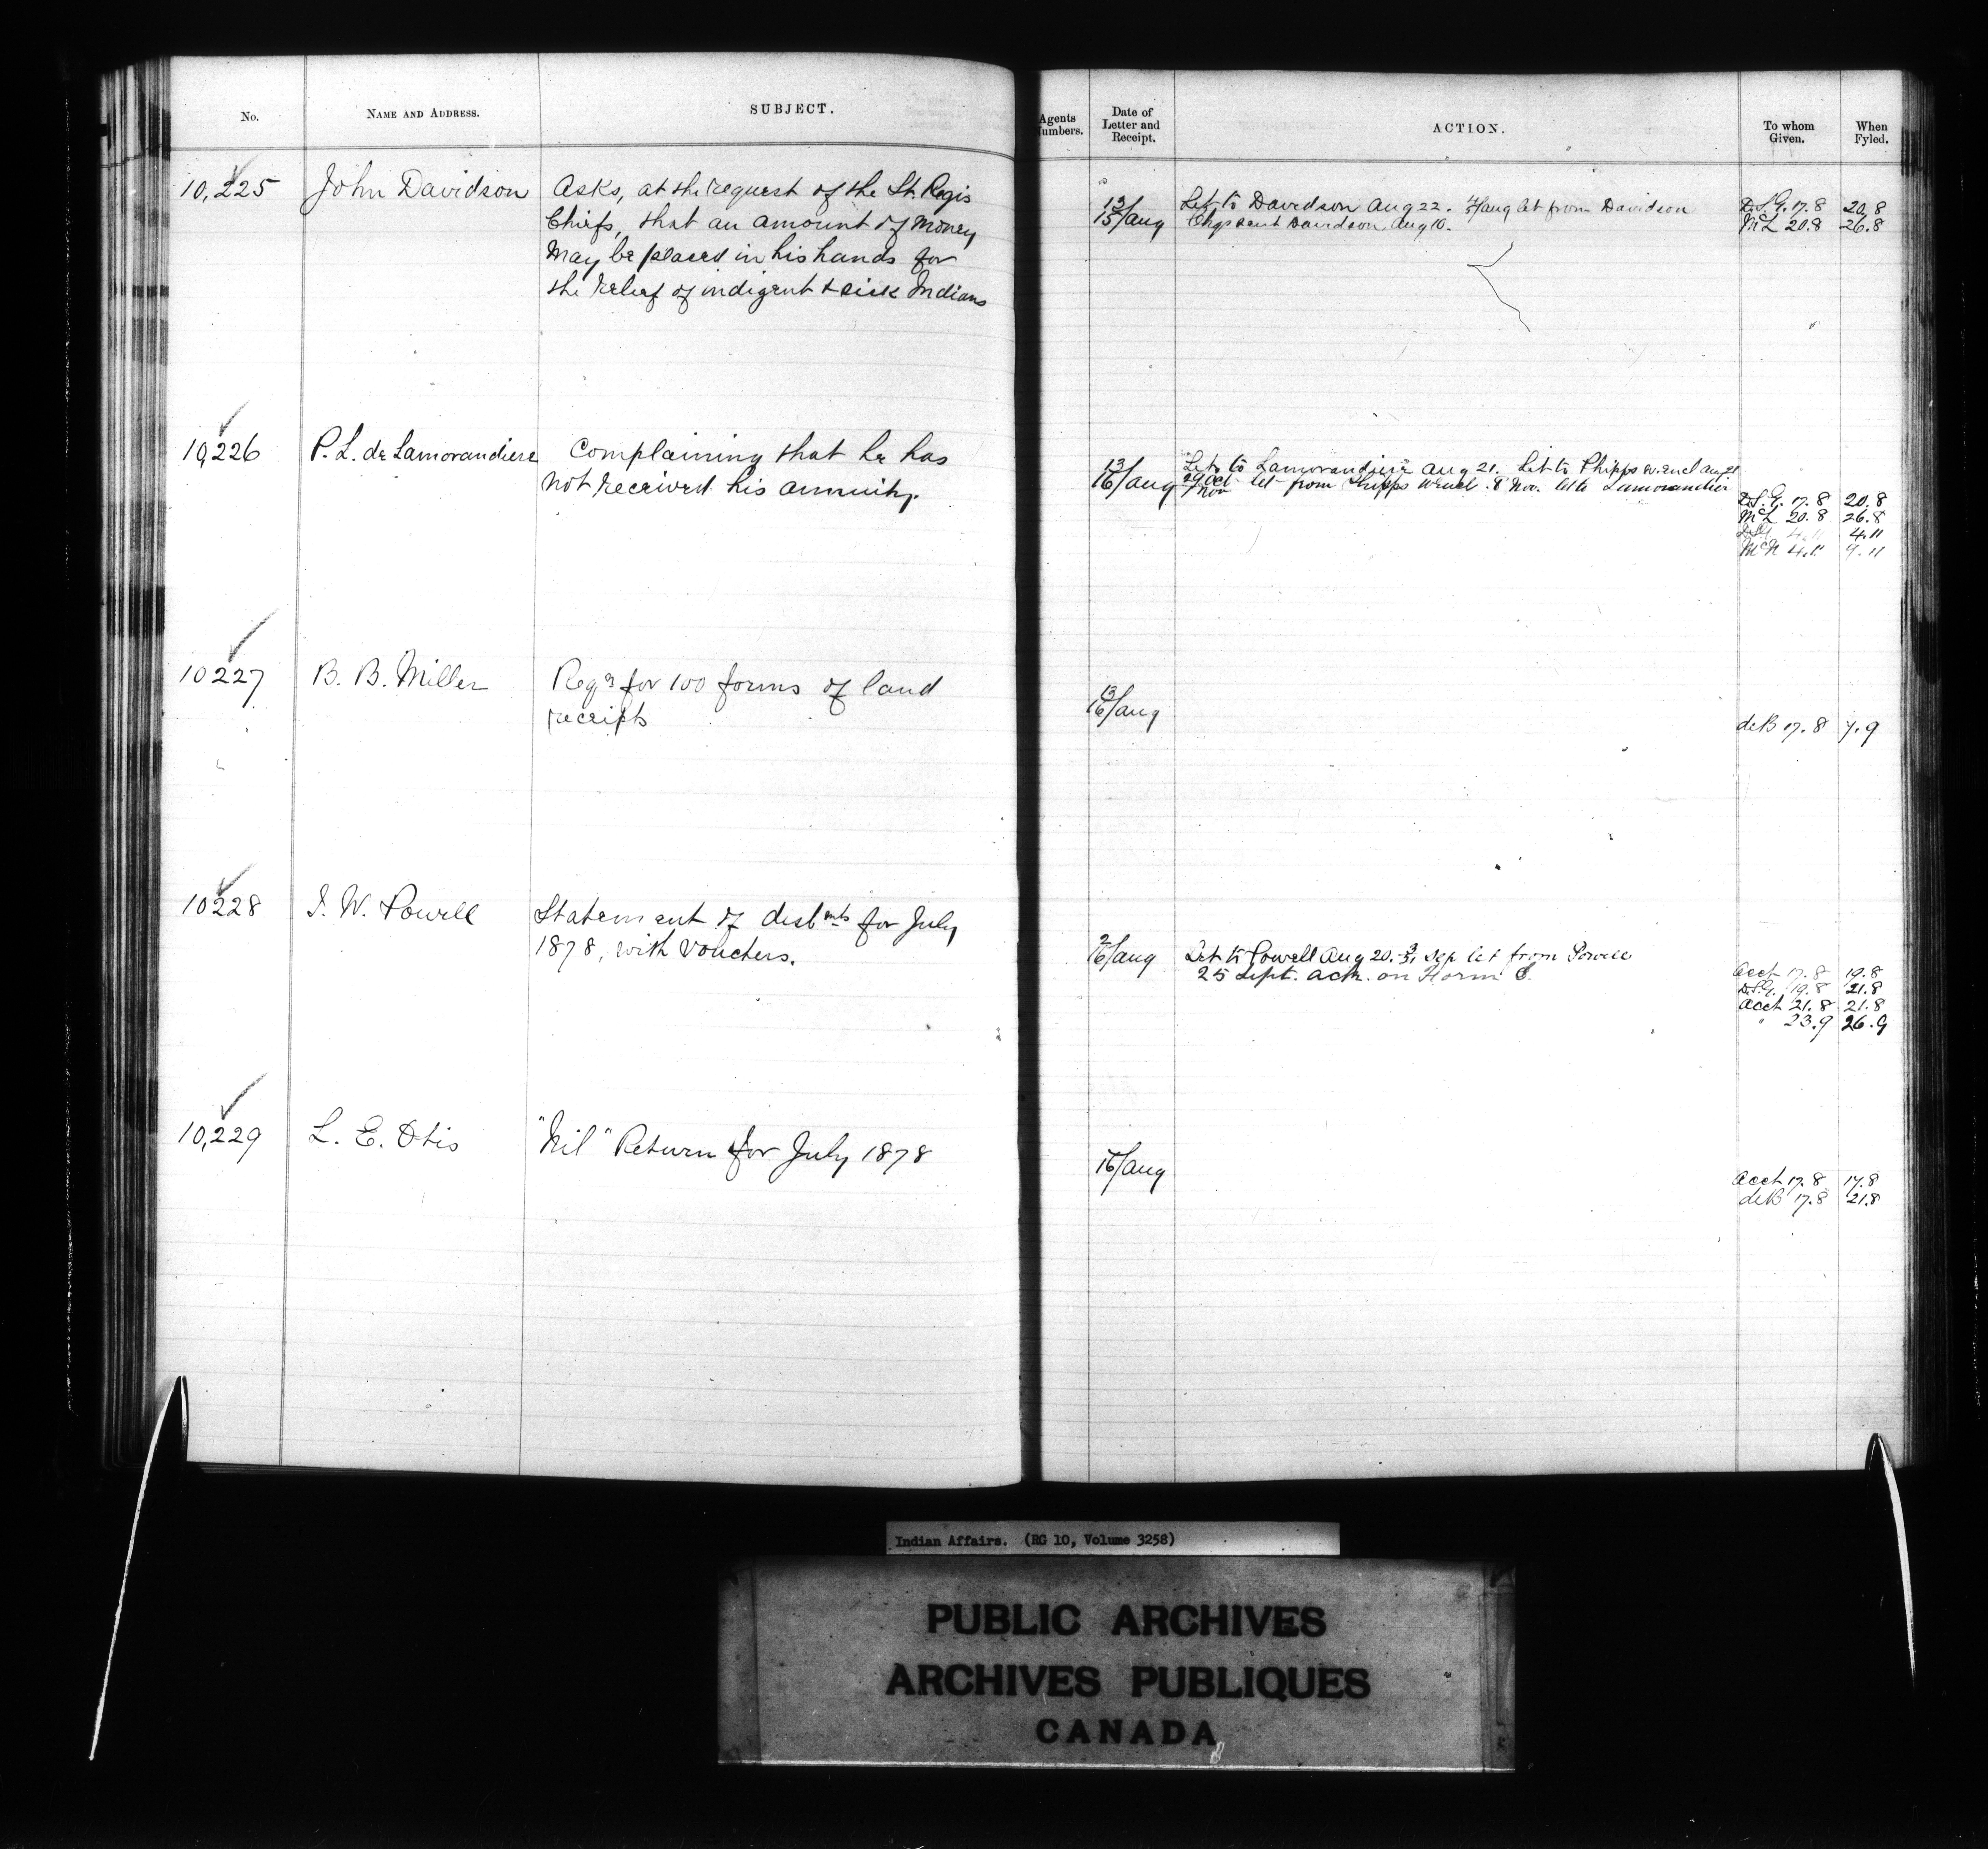 No. NAME AND ADDRESS. SUBJECT.
10,225 John Davidson Asks, at the request of the St. Regis
Chiefs, that an amount of money
may be placed in his hands for
the relief of indigent & sick Indians
10,226 P. L. de Lamorandiere Complaining that he has
not received his annuity.
10227 B. B. Miller Reqn for 100 forms of land
receipts
10228 I. W. Powell Statement of disbmts for July
1878, with vouchers.
10,229 L. E. Otis "Nil" Return for July 1878
Agents Numbers. Date of Letter and Receipt. ACTION. To whom Given. When Fyled.
13/15 Aug Let to Davidson Aug 22. Aug let from Davidson D.S.G. 17.8 20.8
sent Davidson Aug 10. McL 20.8 26.8
13/16 Aug Let to Lamorandiere Aug 21. Let to Phipps w. encl Aug 21
29 Oct/Nov let from Phipps w encl. 8 Nov. let to Lamorandier
D.S.G. 17.8 20.8
McL 20.8 26.8
4.11 4.11
McN 4.11 9.11
13/16 Aug
deB 17.8 7.9
2/16 Aug Let to Powell Aug 20. Sep let from Powell
25 Sept. ack. on Form C.
Acct 17.8 19.8
D.S.G. 19.8 21.8
Acct 21.8 21.8
" 23.9 26.9
16/Aug
Acct 17.8 17.8
deB 17.8 21.8
Indian Affairs. (RG 10, Volume 3258)
PUBLIC ARCHIVES
ARCHIVES PUBLIQUES
CANADA